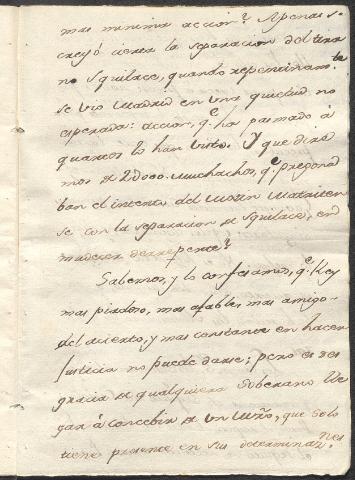 mas minima accion? Apenas se
creyó cierta la separacion del tira
no Squilace, quando repentinamte
se vio Madrid en una quietud no
esperada: accion, qe ha pasmado á
quantos lo han visto. Y que dire
mos de 2d000 muchachos, qe pregona
ban el intento del Motin Matriten
se con la separacion de Squilace, en
mudecer derrepente?
Sabemos, y lo confesamos, qe Rey
mas piadoso, mas afable, mas amigo
del acierto, y mas constante en hacer
Justicia no puede darse; pero es des
gracia de qualquiera Soberano lle
gar á concebir de un Mtro, que solo
tiene presente en sus determinanes